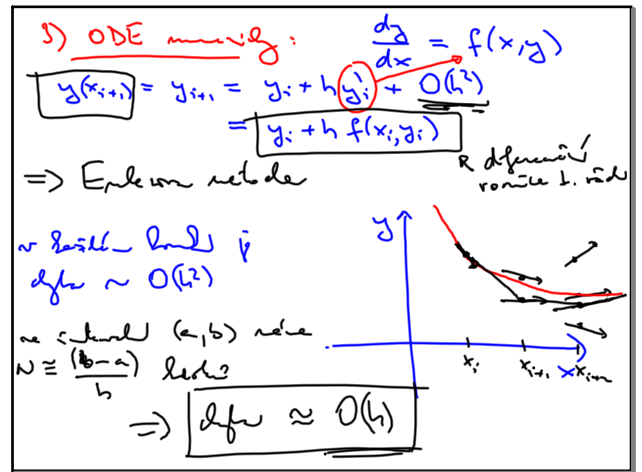 3) ODE numericky:
dy/dx = f(x,y)
y(x_{i+1}) = y_{i+1} = y_i + h y_i' + O(h²)
= y_i + h f(x_i, y_i)
=> Eulerova metoda
diferenciální
rovnice 1. řádu
v každém kroku je
chyba ~ O(h²)
na intervalu (a,b) máme
N ≅ (b-a)/h kroků
=> chyba ≈ O(h)
y
x_i x_{i+1} x x_{i+2}